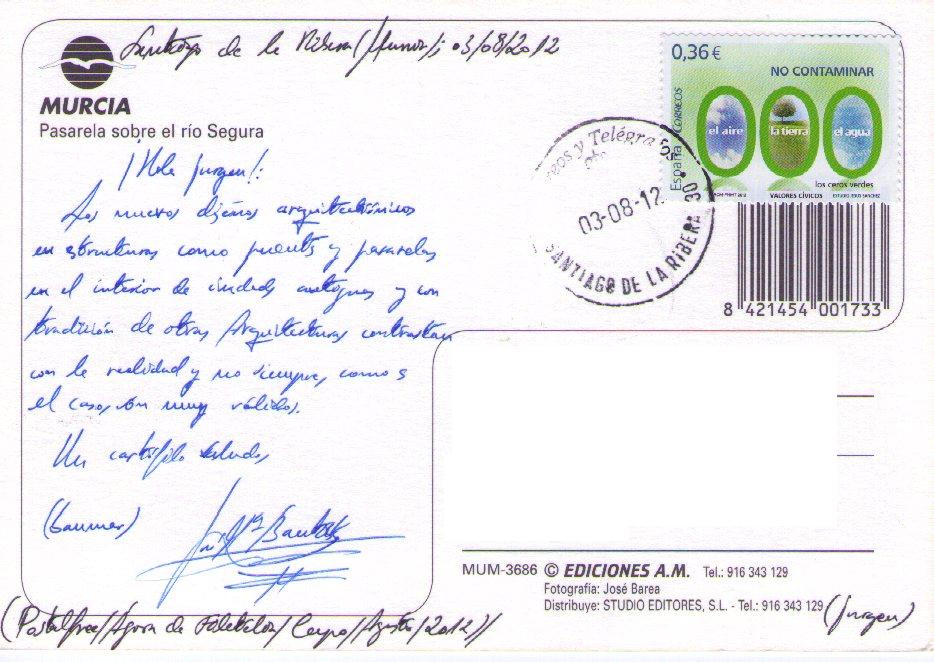 Santiago de la Ribera (Murcia); 03/08/2012
MURCIA
Pasarela sobre el río Segura
¡Hola Jurgen!:
Los nuevos diseños arquitectónicos
en estructuras como puentes y pasarelas
en el interior de ciudades antiguas y con
tradición de otras Arquitecturas contrastan
con la realidad y no siempre, como s
el caso, son muy válidos.
Un cartófilo saludo,
(Gaumer)
José Mª Bautista
(Postalfree//Agora de Filatelia/ Grupo/Agosto/2012//
0,36 €
NO CONTAMINAR
España CORREOS
el aire
la tierra
el agua
los ceros verdes
VALORES CÍVICOS
ESTUDIO JESÚS SÁNCHEZ
eos y Telégrafos
03-08-12
SANTIAGO DE LA RIBERA
8 421454 001733
MUM-3686 © EDICIONES A.M. Tel.: 916 343 129
Fotografía: José Barea
Distribuye: STUDIO EDITORES, S.L. - Tel.: 916 343 129
(Jurgen)